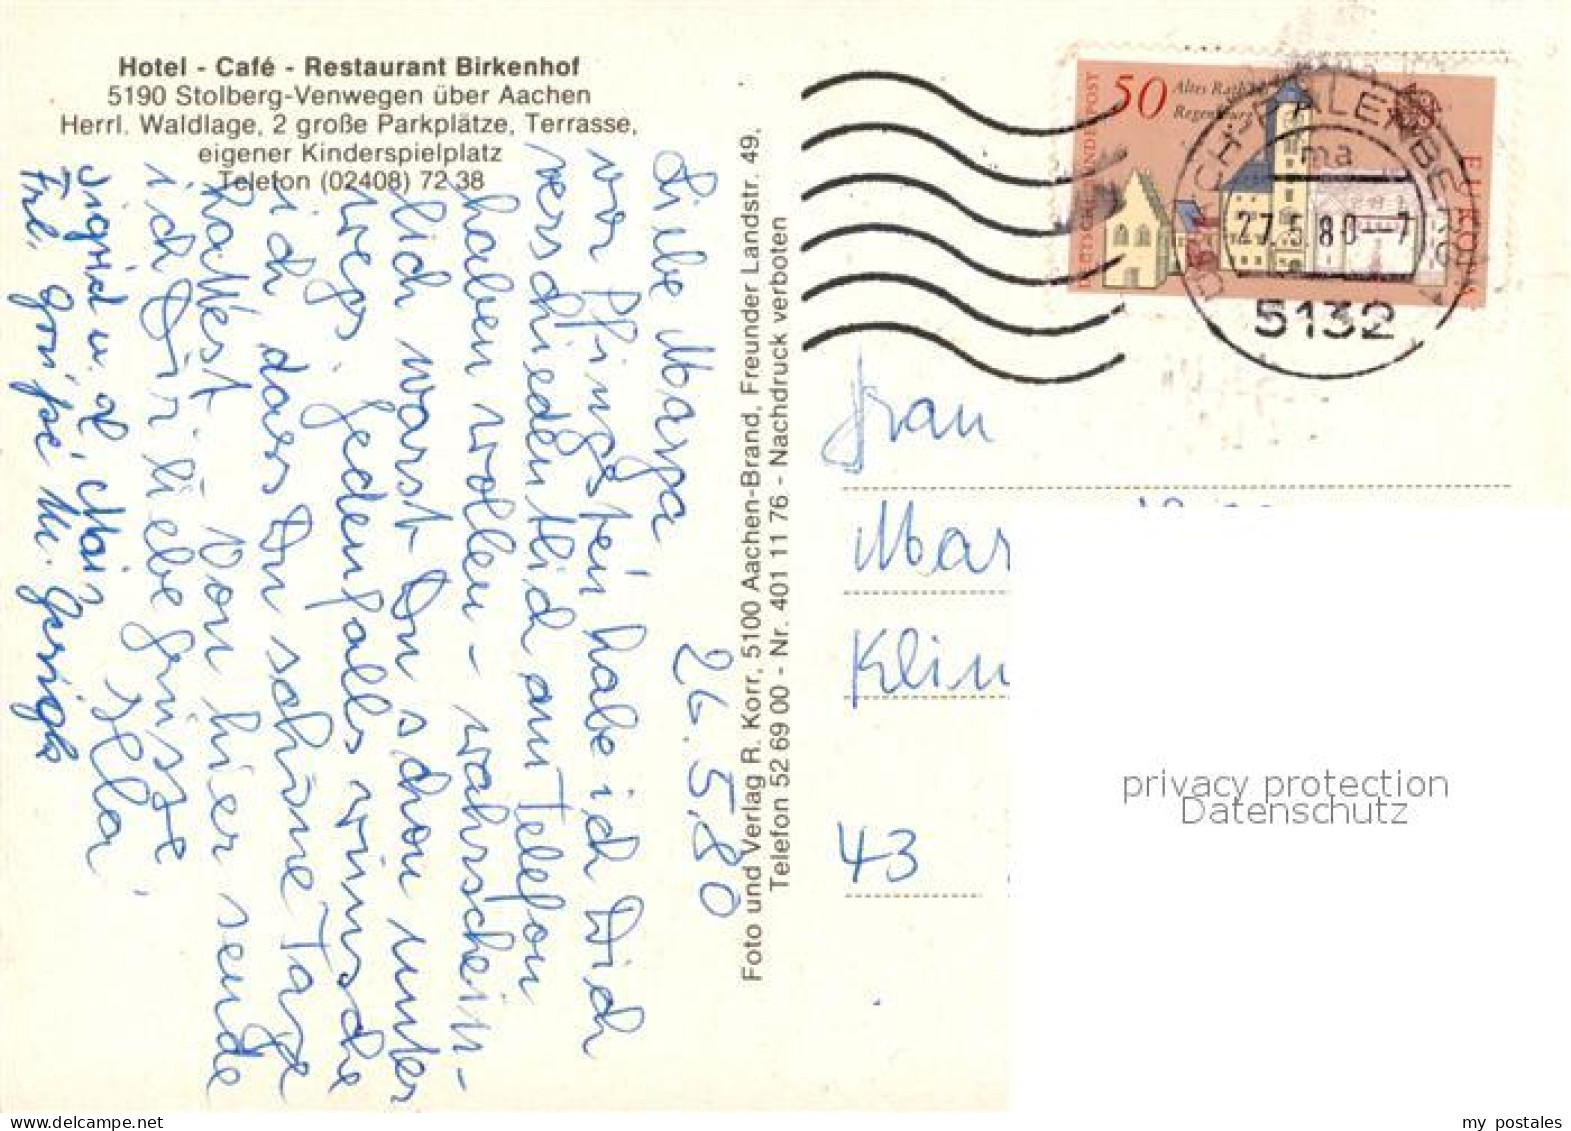 Hotel - Café - Restaurant Birkenhof
5190 Stolberg-Venwegen über Aachen
Herrl. Waldlage, 2 große Parkplätze, Terrasse,
eigener Kinderspielplatz
Telefon (02408) 72 38
26.5.80
Liebe Marga
vor Pfingsten habe ich Dich
verschiedentlich am Telefon
haben wollen - wahrschein-
lich warst Du schon unter
wegs. Jedenfalls wünsche
ich dass Du schöne Tage
hattest. Von hier sende
ich Dir liebe Grüsse
Foto und Verlag R. Korr, 5100 Aachen-Brand, Freunder Landstr. 49,
Telefon 52 69 00 - Nr. 401 11 76 - Nachdruck verboten
DEUTSCHE BUNDESPOST
50
Altes Rathaus
Regensburg
EUROPA
ÜBACH-PALENBERG 1
ma
27.5.80-7
5132
Frau
Mar
Klin
43
privacy protection
Datenschutz
my postales